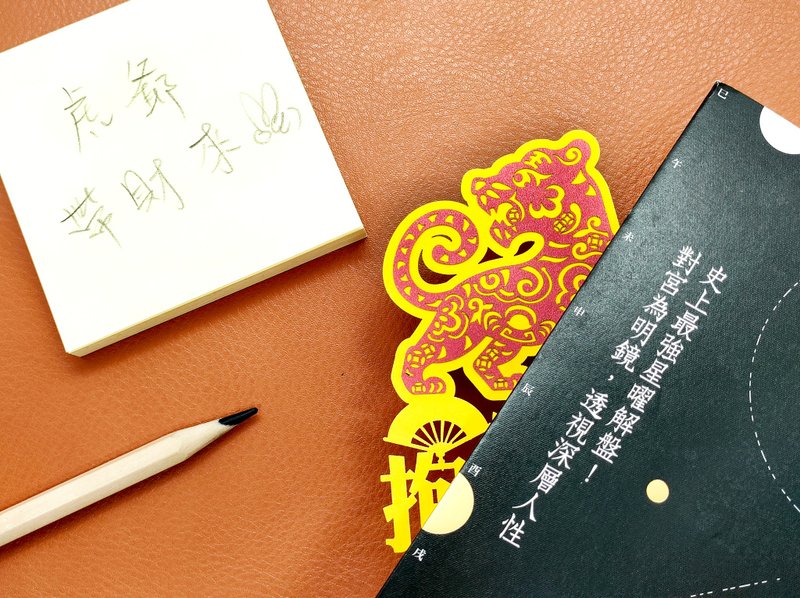 虎爺
帶財來
巳
午
未
申
辰
酉
戌
史上最強星曜解盤！
對宮為明鏡，透視深層人性